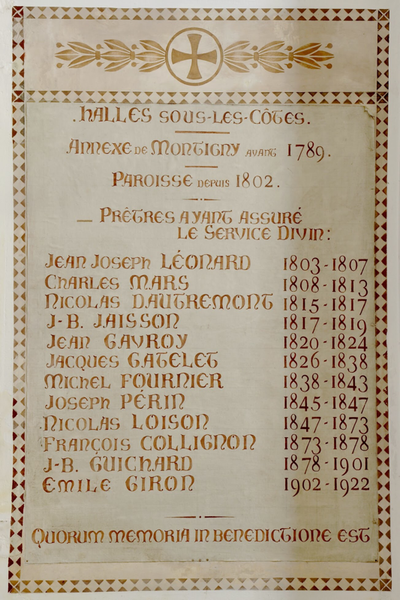 . HALLES SOUS-LES-CÔTES.
ANNEXE DE MONTIGNY AVANT 1789.
PAROISSE DEPUIS 1802.
— PRÊTRES AYANT ASSURÉ
LE SERVICE DIVIN :
JEAN JOSEPH LÉONARD 1803-1807
CHARLES MARS 1808-1813
NICOLAS DAUTREMONT 1815-1817
J-B. JAISSON 1817-1819
JEAN GAVROY 1820-1824
JACQUES GATELET 1826-1838
MICHEL FOURNIER 1838-1843
JOSEPH PÉRIN 1845-1847
NICOLAS LOISON 1847-1873
FRANÇOIS COLLIGNON 1873-1878
J-B. GUICHARD 1878-1901
EMILE GIRON 1902-1922
QUORUM MEMORIA IN BENEDICTIONE EST